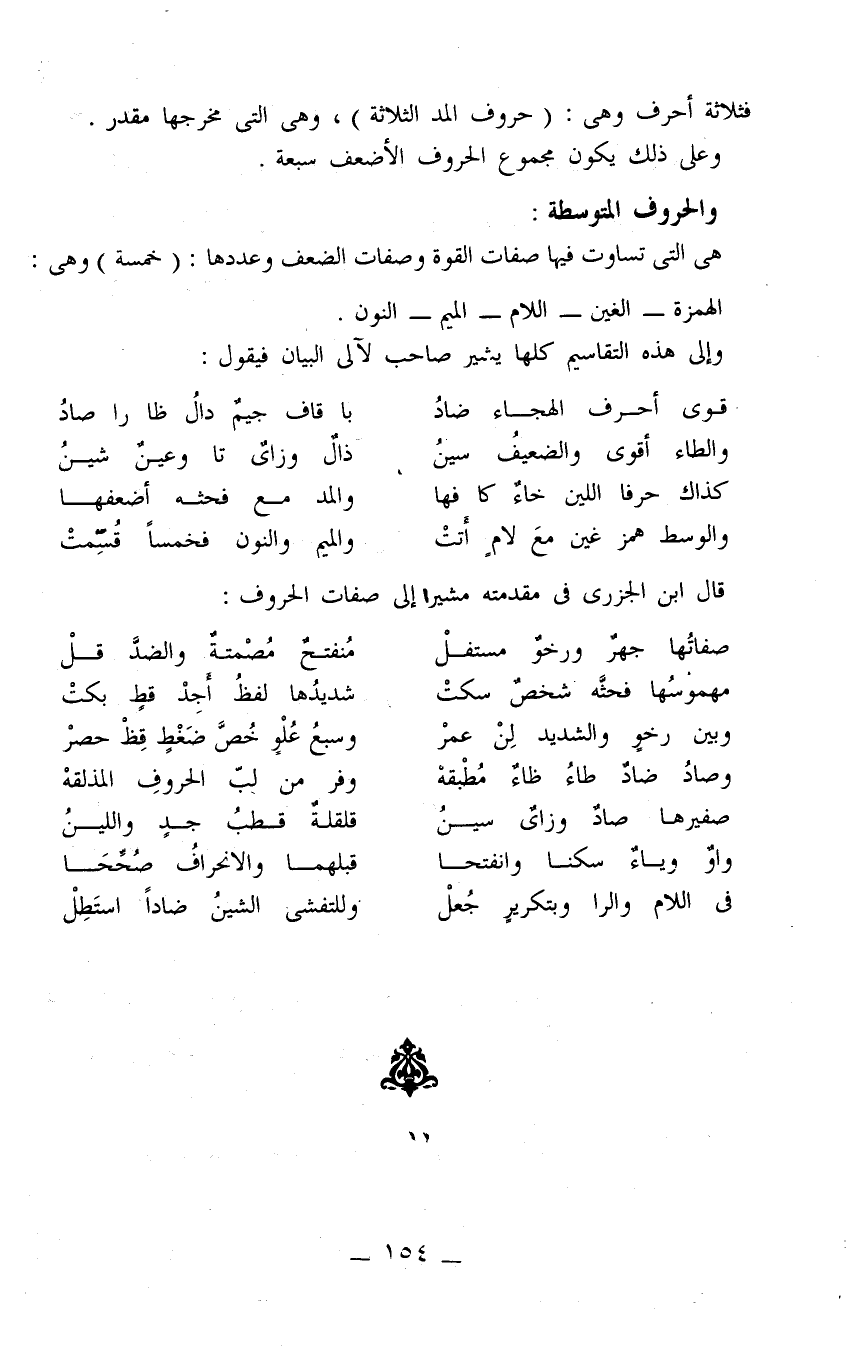 فثلاثة أحرف وهى : ( حروف المد الثلاثة ) ، وهى التى مخرجها مقدر .
وعلى ذلك يكون مجموع الحروف الأضعف سبعة .
والحروف المتوسطة :
هى التى تساوت فيها صفات القوة وصفات الضعف وعددها : ( خمسة ) وهى :
الهمزة ــ الغين ــ اللام ــ الميم ــ النون .
وإلى هذه التقاسيم كلها يشير صاحب لآلى البيان فيقول :
قـوى أحـرف الهجـاء ضادُ با قاف جيمٌ دالُ ظا را صادُ
والطاء أقوى والضعيفُ سينُ ذالٌ وزاىٌ تا وعيـنٌ شيـنُ
كذاك حرفا اللين خاءٌ كا فها والمد مـع فحثـه أضعفهـا
والوسط همز غين معَ لامٍ أَتتْ والميم والنون فخمساً قُسِّمتْ
قال ابن الجزرى فى مقدمته مشيرا إلى صفات الحروف :
صفاتُها جهرٌ ورخوٌ مستفـلْ مُنفتـحٌ مُصْمتـةٌ والضدَّ قـلْ
مهموْسُها فحثَّه شخصٌ سكتْ شديدُها لفظُ أَجِدْ قطٍ بكتْ
وبين رخوٍ والشديد لِنْ عمرْ وسبعُ عُلْوٍ خُصَّ ضَغْطٍ قِظْ حصرْ
وصادُ ضادٌ طاءُ ظاءٌ مُطْبقهْ وفر من لبّ الحروفِ المذلقهْ
صفيرهـا صادٌ وزاىٌ سيـنُ قلقلـةٌ قـطبُ جـدٍ والليـنُ
واوٌ ويـاءٌ سكنـا وانفتحـا قبلهمـا والانحرافُ صُحِّحَـا
فى اللام والرا وبتكريرٍ جُعلْ وللتفشى الشينُ ضاداً استَطِلْ
١١
ــ ١٥٤ ــ